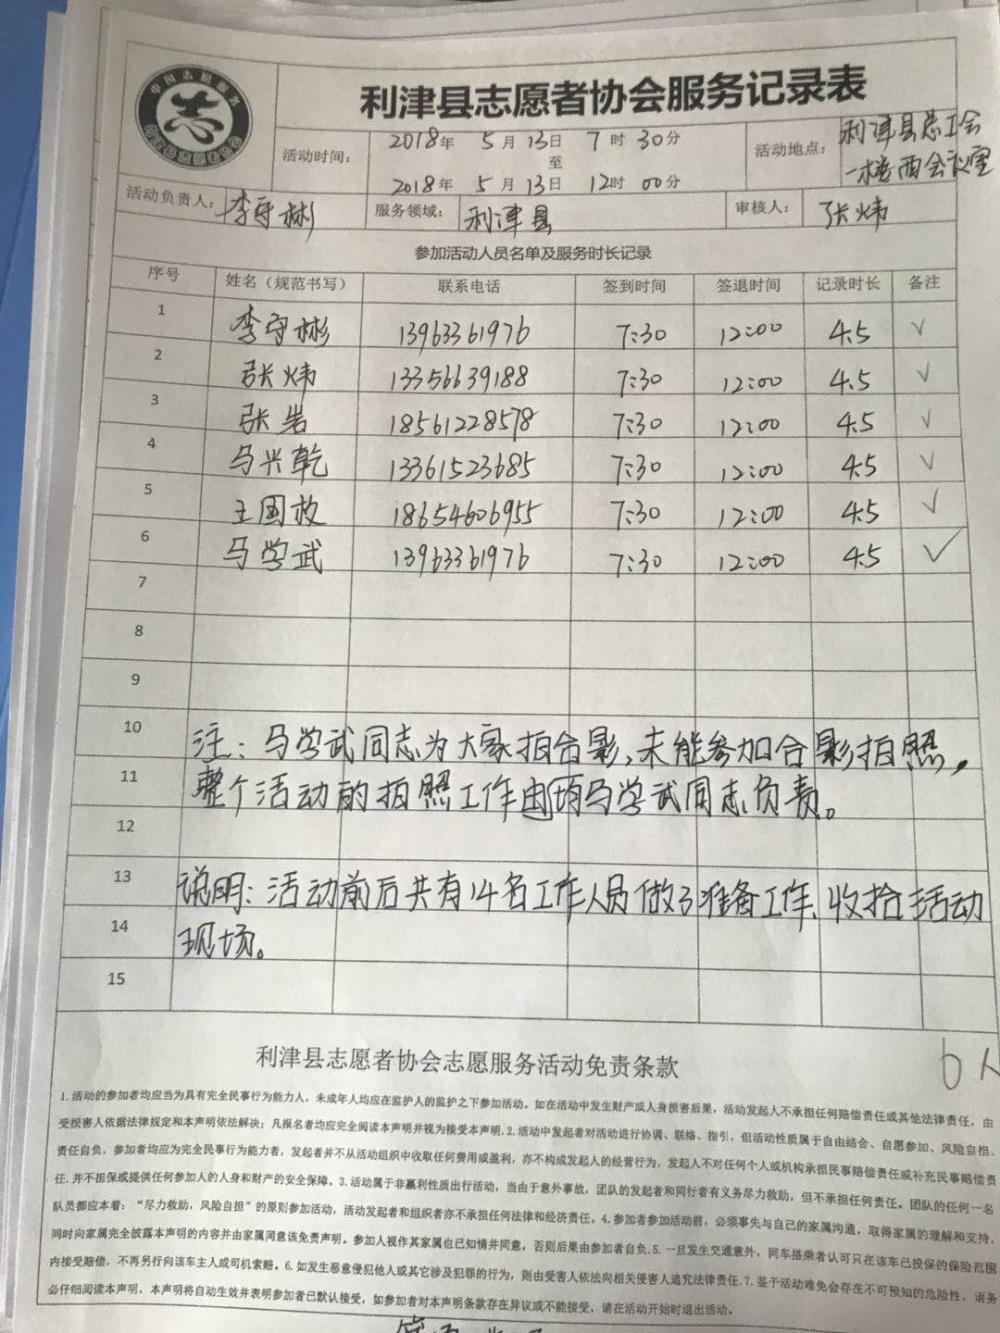 中国志愿服务
志
利津县志愿者协会服务记录表
活动时间： 2018年 5月 13日 7时 30分
至
2018年 5月 13日 12时 00分
活动地点： 利津县总工会
一楼西会议室
活动负责人： 李守彬 服务领域： 利津县 审核人： 张炜
参加活动人员名单及服务时长记录
序号 姓名（规范书写） 联系电话 签到时间 签退时间 记录时长 备注
1 李守彬 13963361976 7:30 12:00 4.5 √
2 张炜 13356639188 7:30 12:00 4.5 √
3 张岩 18561228578 7:30 12:00 4.5 √
4 马兴乾 13361523685 7:30 12:00 4.5 √
5 王国放 18654606955 7:30 12:00 4.5 √
6 马学武 13963361976 7:30 12:00 4.5 √
7
8
9
10 注：马学武同志为大家拍合影，未能参加合影拍照，
11 整个活动的拍照工作由均马学武同志负责。
12
13 说明：活动前后共有14名工作人员做了准备工作、收拾活动
14 现场。
15
6人
利津县志愿者协会志愿服务活动免责条款
1.活动的参加者均应当为具有完全民事行为能力人，未成年人均应在监护人的监护之下参加活动。如在活动中发生财产或人身损害后果，活动发起人不承担任何赔偿责任或其他法律责任，由
受损害人依据法律规定和本声明依法解决；凡报名者均应完全阅读本声明并视为接受本声明.2.活动中发起者对活动进行协调、联络、指引，但活动性质属于自由结合、自愿参加、风险自担、
责任自负，参加者均应为完全民事行为能力者，发起者并不从活动组织中收取任何费用或盈利，亦不构成发起人的经营行为，发起人不对任何个人或机构承担民事赔偿责任或补充民事赔偿责
任.并不担保或提供任何参加人的人身和财产的安全保障。3.活动属于非赢利性质出行活动，当由于意外事故，团队的发起者和同行者有义务尽力救助，但不承担任何责任。团队的任何一名
队员都应本着：“尽力救助，风险自担”的原则参加活动，活动发起者和组织者亦不承担任何法律和经济责任。4.参加者参加活动前，必须事先与自己的家属沟通，取得家属的理解和支持，
同时向家属完全披露本声明的内容并由家属同意该免责声明。参加人视作其家属也已知情并同意，否则后果由参加者自负.5.一旦发生交通意外，同车搭乘者认可只在该车已投保的保险范围
内接受赔偿，不再另行向该车主人或司机索赔。6.如发生恶意侵犯他人或其它涉及犯罪的行为，则由受害人依法向相关侵害人追究法律责任.7.鉴于活动难免会存在不可预知的危险性，请务
必仔细阅读本声明，本声明将自动生效并表明参加者已默认接受，如参加者对本声明条款存在异议或不能接受，请在活动开始时退出活动。